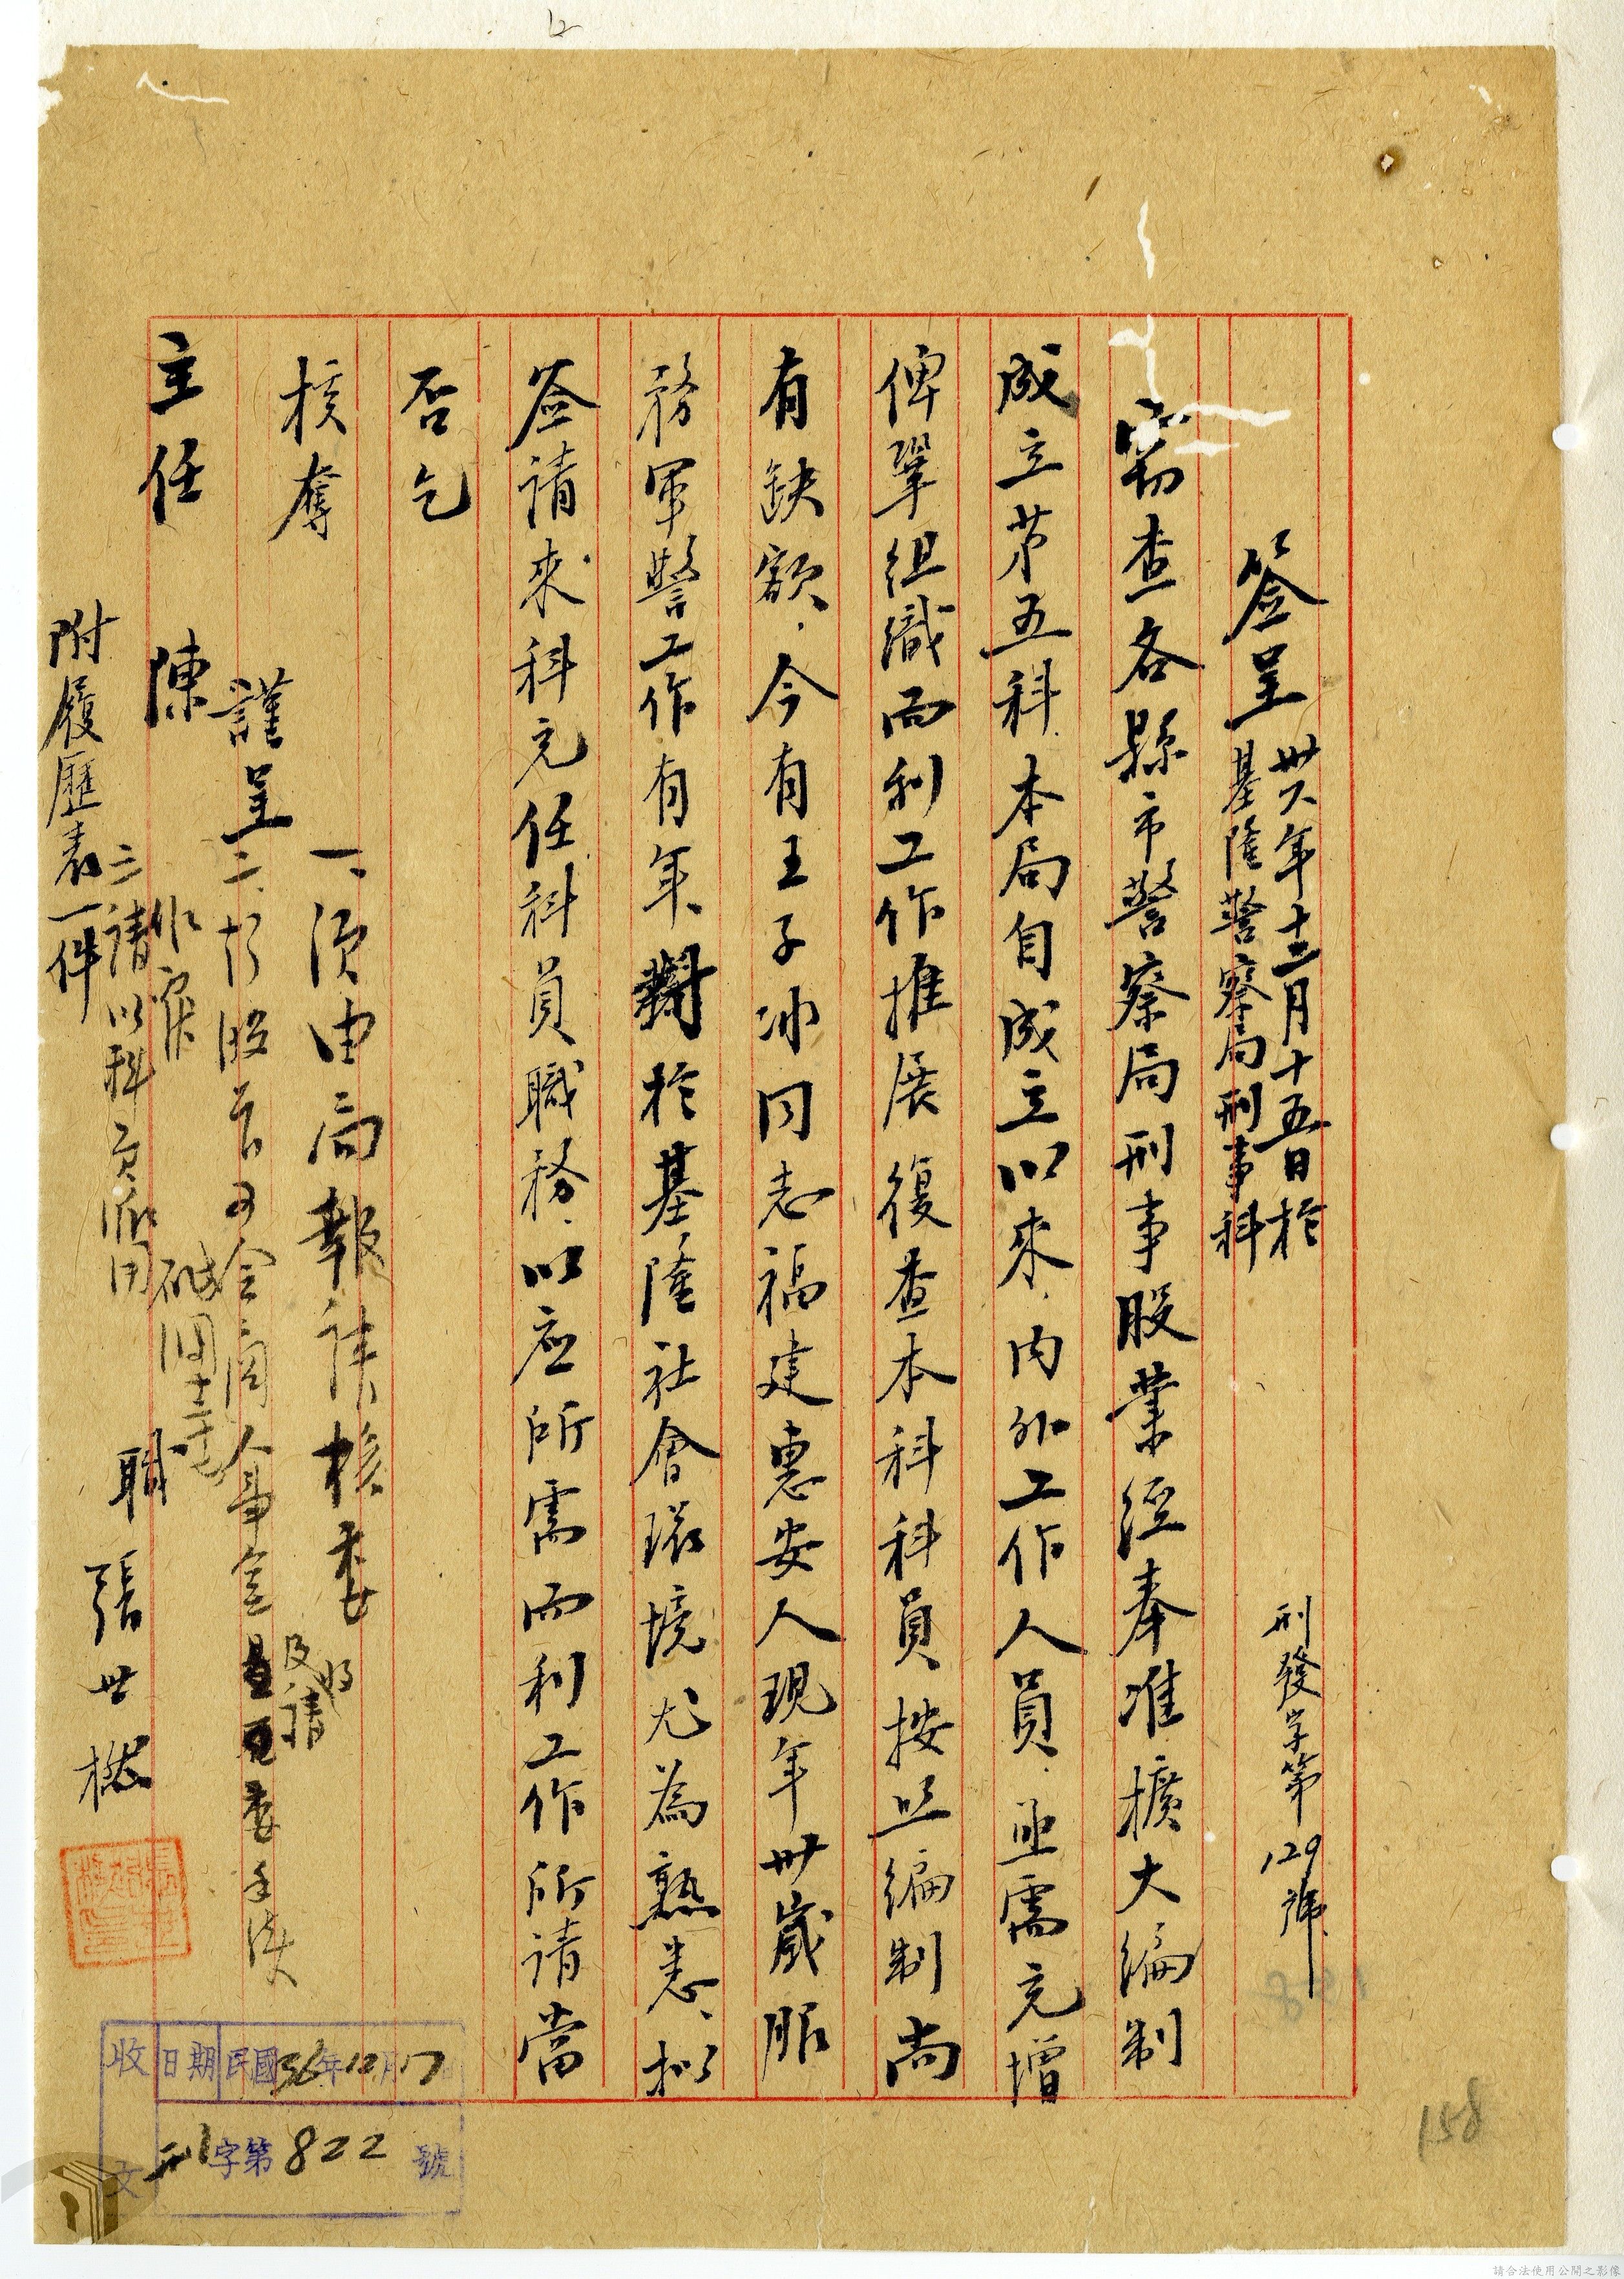 刑發字第129號
簽呈 卅六年十二月十五日於
基隆警察局刑事科
竊查各縣市警察局刑事股業經奉准擴大編制
成立第五科、本局自成立以來、內外工作人員、亟需充增
俾鞏組織而利工作推展復查本科科員按照編制尚
有缺額、今有王子冲同志福建惠安人現年卅歲服
務軍警工作有年、對於基隆社會環境尤為熟悉、擬
簽請來科充任科員職務、以應所需而利工作所請當
否乞
核奪
謹呈
主任 陳
職 張世楤
附履歷表一件
一、須由局報請核委
二、請以科員派用
收文 日期 民國36年12月17
刑字第822號
158
請合法使用公開之影像